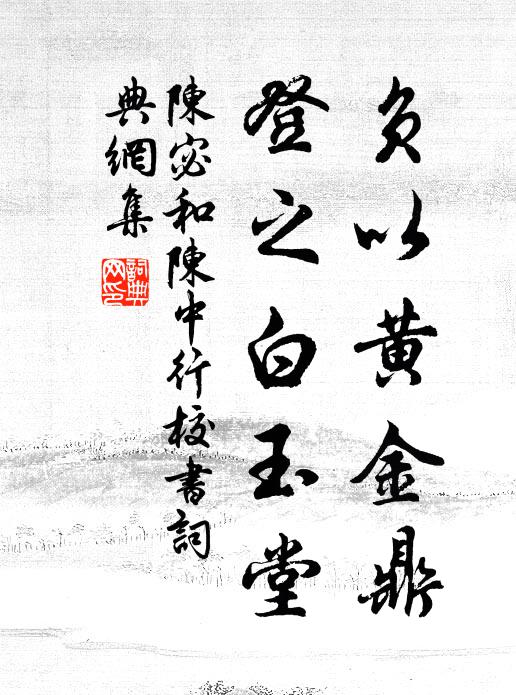 负以黄金鼎
登之白玉堂
陳宓和陳中行校書詞
典網集
詞典網印